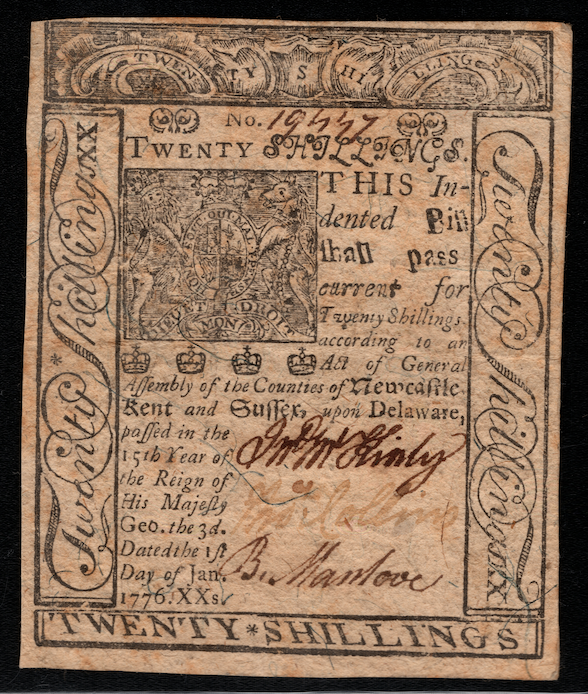 TWENTY SHILLINGS
No. 19447
TWENTY SHILLINGS.
THIS In-
dented Bill
shall pass
current for
Twenty Shillings
according to an
Act of General
Assembly of the Counties of Newcastle
Kent and Sussex, upon Delaware,
passed in the
15th Year of
the Reign of
His Majesty
Geo. the 3d.
Dated the 1st
Day of Jan.
1776. XXs
HONI SOIT QUI MAL Y PENSE
DIEU ET MON DROIT
Jno. McKinly
Thos. Collins
B. Manlove
Twenty Shillings XX
Twenty Shillings XX
TWENTY*SHILLINGS